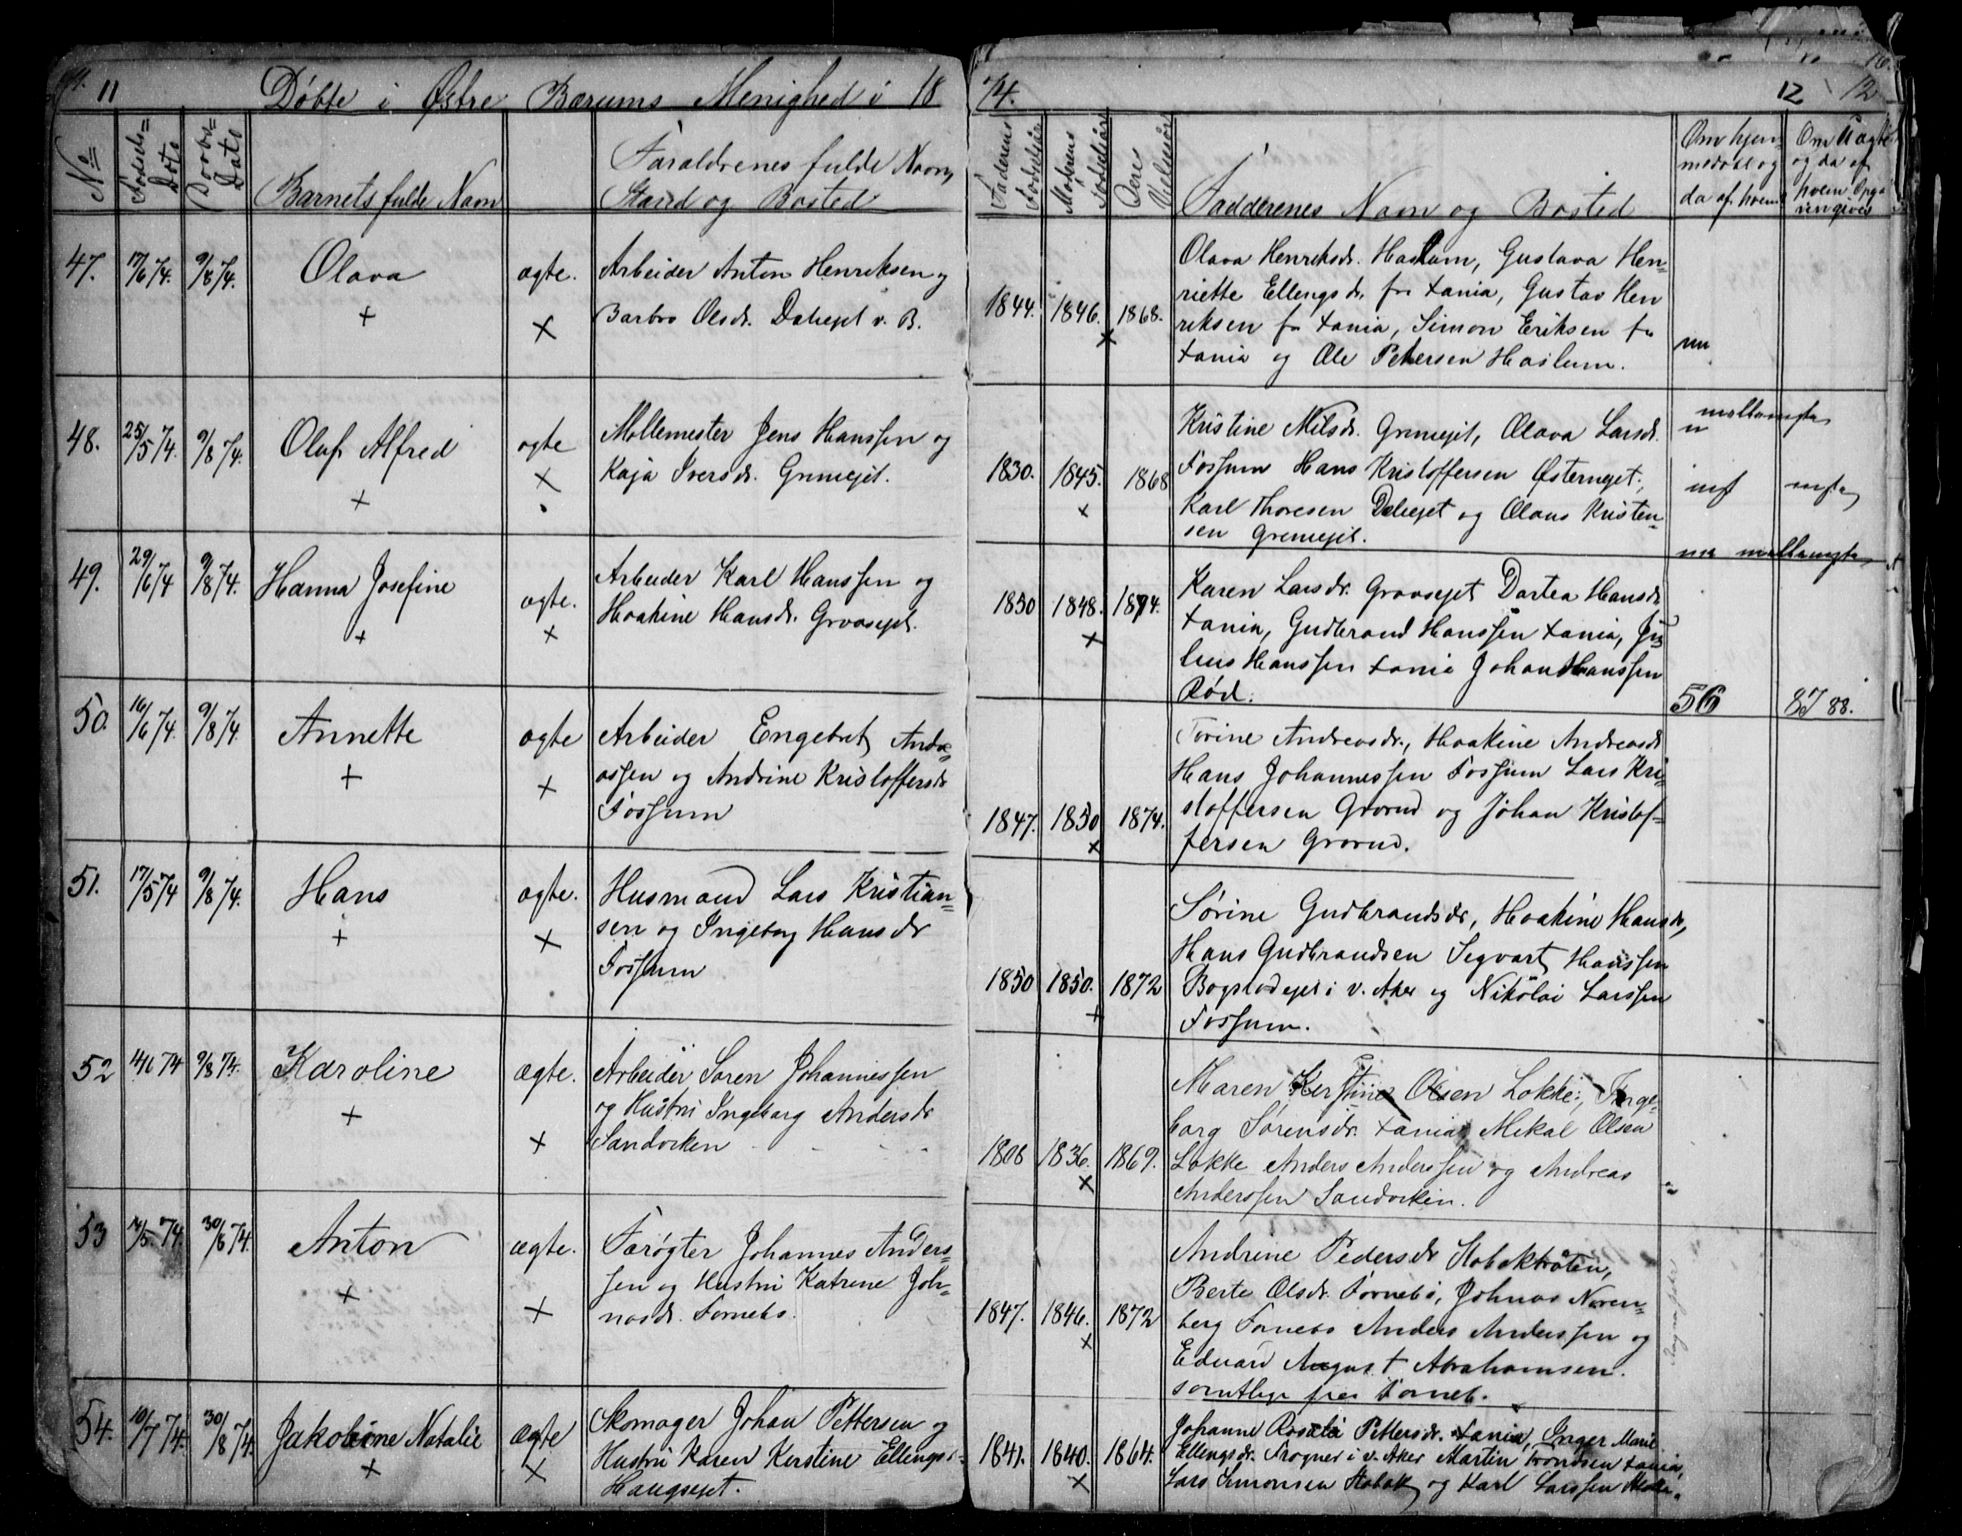 11
Døbte i Østre Bærums Menighed i 18
74.
12
12
No
Fødsels=
Dato
Daabs=
Dato
Barnets fulde Navn
Forældrenes fulde Navn,
Stand og Bosted
Faderens
Fødselsår
Moderens
Fødselsår
Deres
Vielsesår
Faddernes Navn og Bosted
Om hjem-
medøbt og
da af hvem
Om
og da af
hvem Opgi
47.
17/6 74.
9/8 74.
Olava
+
ægte.
×
Arbeider Anton Henriksen og
Barbro Olsdr. Dalsejet v. B.
1844.
1846.
×
1868.
Olava Henriksdr. Haslum, Gustava Hen=
riette Ellengsdr. fr Tania, Gustav Hen
riksen fr Tania, Simon Eriksen fr
Tania og Ole Pettersen Haslum.
48.
25/5 74.
9/8 74.
Oluf Alfred
+
ægte
×
Møllemester Jens Hanssen og
Kaja Iversdr. Griniejet.
1830.
1845.
×
1868
Kristine Nilsdr. Griniejet, Olava Larsdr.
Fossum Hans Kristoffersen Østernejet,
Karl Thoresen Dalsejet og Olaus Kristen=
sen Griniejet.
49.
29/6 74
9/8 74.
Hanna Josefine
+
ægte.
×
Arbeider Karl Hanssen og
Hoakine Hansdr. Gravsejet.
1850
1848.
×
1874.
Karen Larsdr. Gravsejet Dortea Hansdr
Tania, Gudbrand Hanssen Tania, Ju=
lius Hanssen Tania Johan Hanssen
Rød.
56
87 88.
50.
16/6 74.
9/8 74.
Annette
+
ægte
×
Arbeider Engebret Andre=
assen og Andrine Kristoffersdr
Fossum
1847.
1850
×
1874.
Torine Andreasdr., Hoakine Andreasdr
Hans Johannessen Fossum Lars Kri=
stoffersen Grorud og Johan Kristof=
fersen Grorud.
51.
17/5 74
9/8 74.
Hans
+
ægte.
×
Husmand Lars Kristian=
sen og Ingeborg Hansdr
Fossum
1850
1850.
+
1872
Sørine Gudbrandsdr, Hoakine Hansdr,
Hans Gudbrandsen Segvart Hanssen
Bogstadejet i v. Aker og Nikolai Larssen
Fossum.
52
4/6 74
9/8 74.
Karoline
+
ægte.
×
Arbeider Søren Johannessen
og Hustru Ingeborg Andersdr
Sandviken
1808
1836.
×
1869.
Maren Kerstine Olsen Løkke, Inge=
borg Sørensdr. Tania Mikal Olsen
Løkke Anders Anderssen og Andreas
Anderssen Sandviken.
53
7/5 74.
30/8 74.
Anton
×
ægte.
×
Farøgter Johannes Anders=
sen og Hustru Katrine Joh=
nasdr. Fornebo.
1847.
1846.
×
1872
Andrine Pedersdr Stabekbråten,
Berte Olsdr. Fornebo, Johnas Noren=
berg Fornebo Anders Anderssen og
Eduard August Abrahamsen.
samtlige fra Forneb.
54.
10/7 74.
30/8 74.
Jakobine Natalie
×
ægte
×
Skomager Johan Pettersen og
Hustru Karen Kerstine Ellengsd.
Haugsejet.
1841.
1840.
×
1864.
Johanne Rosalie Pettersdr. Tania, Inger Marie
Ellengsdr. Frogner i v. Aker Martin Trondsen Tania,
Lars Simonsen Stabæk og Karl Larssen